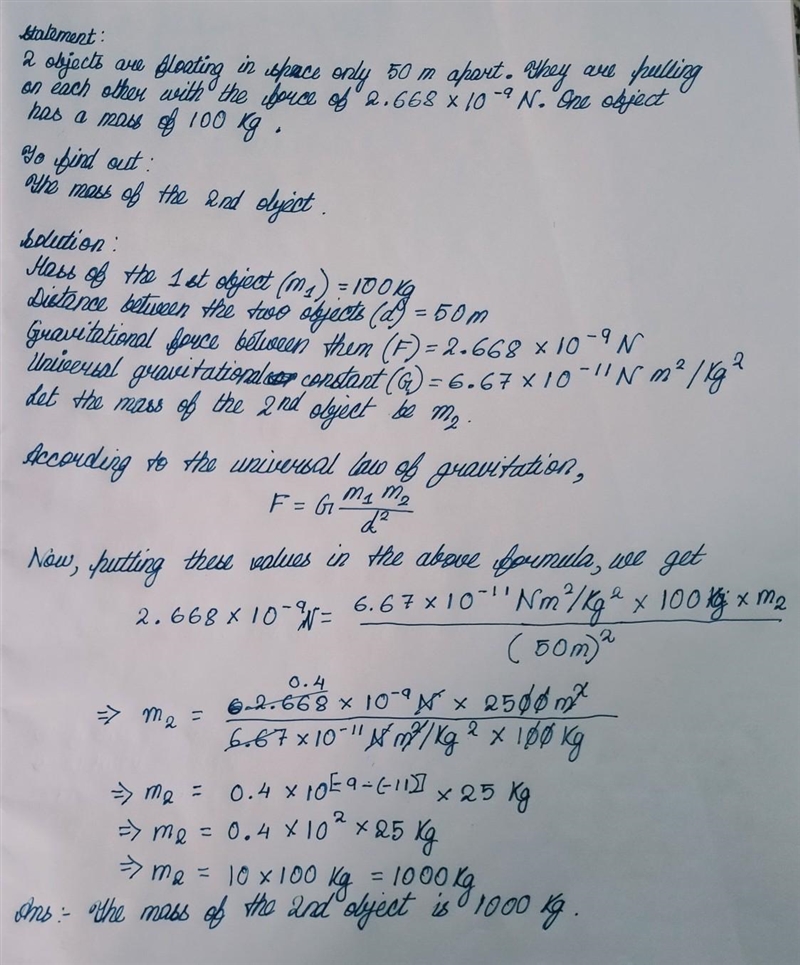 Statement:
2 objects are floating in space only 50 m apart. They are pulling
on each other with the force of 2.668 × 10⁻⁹ N. One object
has a mass of 100 Kg.
To find out:
The mass of the 2nd object.
Solution:
Mass of the 1st object (m₁) = 100 Kg
Distance between the two objects (d) = 50 m
Gravitational force between them (F) = 2.668 × 10⁻⁹ N
Universal gravitational constant (G) = 6.67 × 10⁻¹¹ N m²/Kg²
Let the mass of the 2nd object be m₂.
According to the universal law of gravitation,
F = G m₁ m₂ / d²
Now, putting these values in the above formula, we get
2.668 × 10⁻⁹ N = 6.67 × 10⁻¹¹ Nm²/Kg² × 100 Kg × m₂ / (50m)²
0.4
⇒ m₂ = 2.668 × 10⁻⁹ N × 2500 m² / 6.67 × 10⁻¹¹ N m²/Kg² × 100 Kg
⇒ m₂ = 0.4 × 10^[-9-(-11)] × 25 Kg
⇒ m₂ = 0.4 × 10² × 25 Kg
⇒ m₂ = 10 × 100 Kg = 1000 Kg
Ans :- The mass of the 2nd object is 1000 Kg.